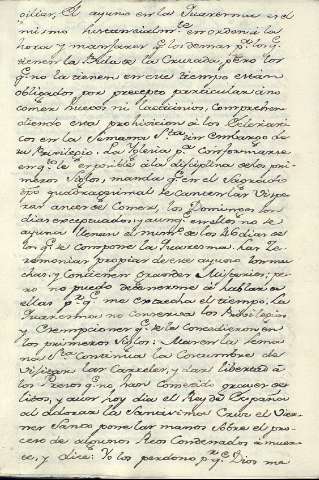 ciliar, El ayuno en la Quaresma es el
mismo substancialm.te en orden á la
hora y manjares q.e los demas p.a los q.e
tienen la Bula de la Cruzada, pero los
q.e no la tienen en este tiempo están
obligados por precepto particular á no
comer huevos ni lacticinios, comprehen-
diendo esta prohivicion á los Eclesiasti-
cos en la Semana S.ta sin embargo de
su Privilegio. La Iglesia p.a conformarse
en q.to le es posible á la disciplina de los pri-
meros Siglos, manda q.e en el Sagrado
tpo quadragesimal se canten las Vispe-
ras antes de Comer, los Domingos son
dias exceptuados, y aunq.e en ellos no se
ayuna llenan el num.o de los 46 dias de
q.e se compone la Quaresma. Las Ze-
remonias propias de este ayuno son mu-
chas, y contienen grandes Misterios; pe-
ro no puedo detenerme á hablar de
ellas p.r q.e me estrecha el tiempo, la
Quaresma no conserva los Privilegios
y Exempciones q.e se le concedieron en
los primeros Siglos: Mas en la Sema
na S.ta Continúa la Costumbre de
visitar las Carceles, y dar libertad á
los Presos q.e no han Cometido graves de-
litos, y aun hoy dia el Rey de España
al adorar la Santisima Cruz el Vier-
nes Santo pone las manos sobre el pro-
ceso de algunos Reos Condenados á muer-
te, y dice: Yo los perdono p.r q.e Dios me